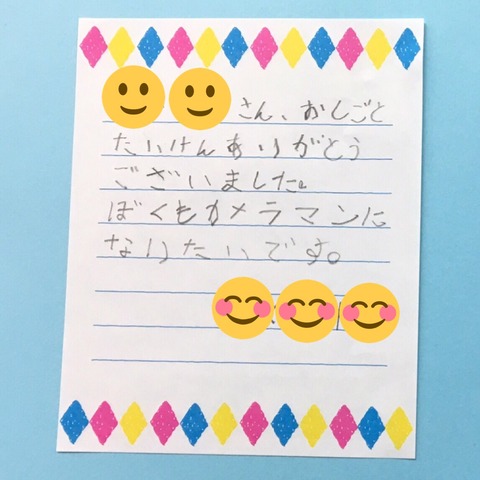 さん、おしごと
たいけんありがとう
ございました。
ぼくもカメラマンに
なりたいです。